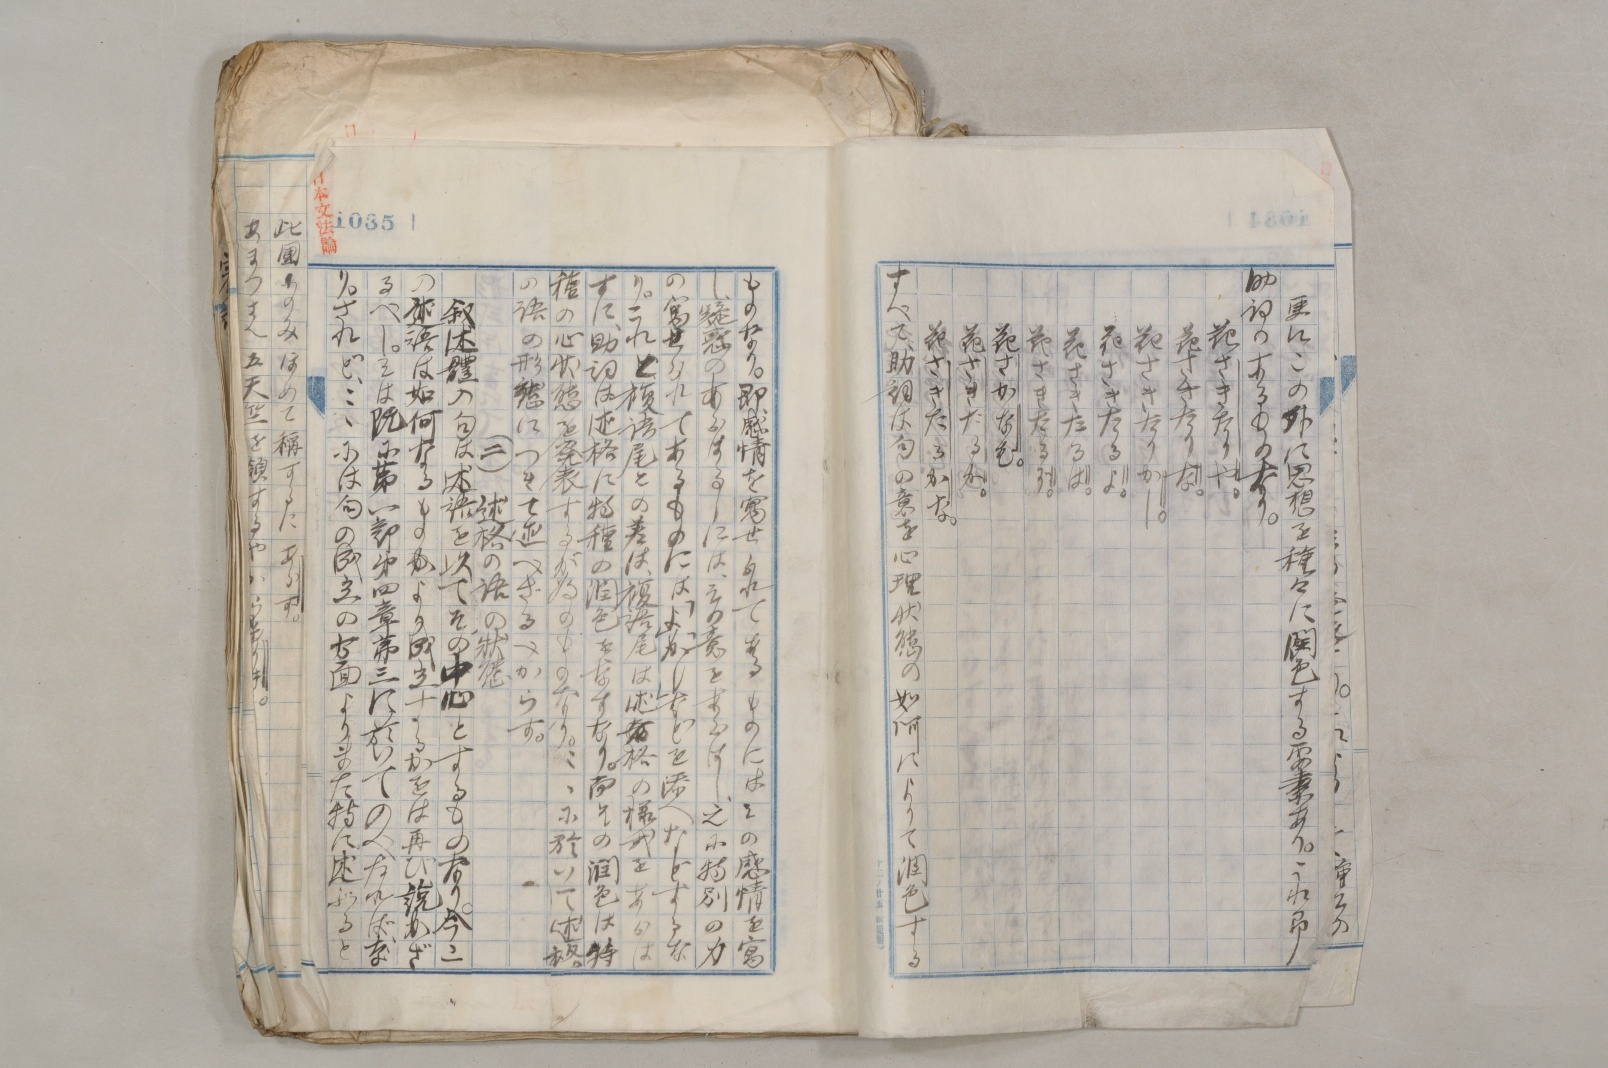 更にこの外に思想を種々に潤色する要素あり。これ即
助詞のあるものなり。
花さきたりや。
花さきたりな。
花さきたりかし。
花さきたるよ。
花さきたるは。
花さきたるぞ。
花さかなむ。
花さきたるか。
花さきたるかな。
すべて、助詞は句の意を心理状態の如何によりて潤色する
1035
日本文法論
ものなり。即感情を寓せられてあるものにはその感情を寓
し、疑惑のあらはるゝには、その意をあらはし、之に特別の力
の寓せられてあるものには「よ」「かし」などを添へなどするな
り。これと複語尾との差は、複語尾は述格の様式をあらは
すに、助詞は述格に特種の潤色をなすなり。而その潤色は特
種の心状態を発表するが為のものなり。こゝに於いて述格
の語の形態につきて述べざるべからず。
(二) 述格の語の状態
叙述體の句は述語を以てその中心とするものなり。今こ
の述語は如何なるものによりて成立するかをば再び説かざ
るべし。そは既に第一部第四章第三に於いてのべたればな
り。されど、こゝには句の成立の方面よりまた特に述ぶると
此國をのみほめて稱すたあらず。